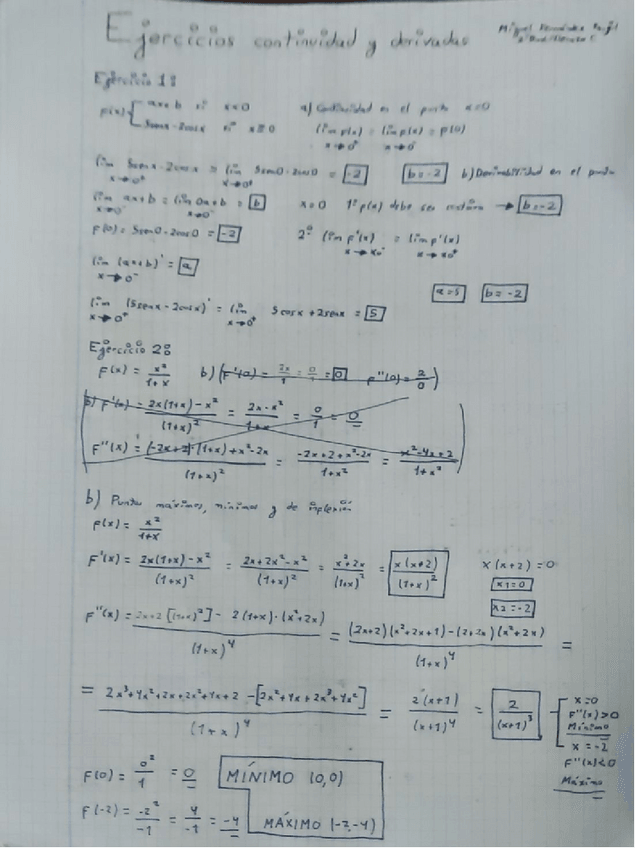 Ejercicios continuidad y derivadas
Ejercicio 1:
f(x) { ax+b si x<0 a) Continuidad en el punto x=0
5senx-2cosx si x≥0 lím f(x) = lím f(x) = f(0)
x→0⁺ x→0⁻
lím 5senx-2cosx = lím 5sen0-2cos0 = -2 b=-2 b) Derivabilidad en el punto
x→0⁺ x→0⁺
lím ax+b = lím 0a+b = b x=0 1º f(x) debe ser continua → b=-2
x→0⁻ x→0⁻
f(0)= 5sen0-2cos0 = -2 2º lím f'(x) = lím f'(x)
lím (ax+b)' = a
x→0⁻
a=5 b=-2
lím (5senx-2cosx)' = lím 5cosx+2senx = 5
x→0⁺ x→0⁺
Ejercicio 2:
F(x) = x²/1+x b) (F'(0) = 2x/1 = 0/1 = 0 F''(0) = 2/0)
b) F'(x) = 2x(1+x)-x²/(1+x)² = 2x-x²/1+x = 0/1 = 0
F''(x) = (-2x+2)·(1+x)+x²-2x/(1+x)² = -2x+2+x²-2x/1+x² = x²-4x+2/1+x²
b) Puntos máximos, mínimos y de inflexión
F(x) = x²/1+x
F'(x) = 2x(1+x)-x²/(1+x)² = 2x+2x²-x²/(1+x)² = x²+2x/(1+x)² = x(x+2)/(1+x)² x(x+2)=0
x₁=0
x₂=-2
F''(x) = 2x+2[(1+x)²]-2(1+x)·(x²+2x)/(1+x)⁴ = (2x+2)(x²+2x+1)-(2+2x)(x²+2x)/(1+x)⁴ =
= 2x³+4x²+2x+2x²+4x+2-[2x²+4x+2x³+4x²]/(1+x)⁴ = 2(x+1)/(x+1)⁴ = 2/(x+1)³
x=0
F''(x)>0
Mínimo
x=-2
F''(x)<0
Máximo
F(0) = 0²/1 = 0 MÍNIMO (0,0)
F(-2) = -2²/-1 = 4/-1 = -4 MÁXIMO (-2,-4)